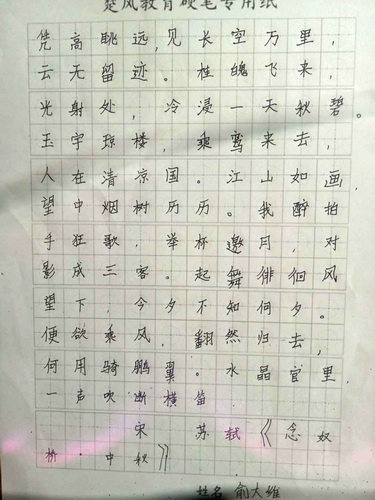 楚风教育硬笔专用纸
凭高眺远,见长空万里,
云无留迹。桂魄飞来,
光射处,冷浸一天秋碧。
玉宇琼楼,乘鸾来去,
人在清凉国。江山如画,
望中烟树历历。我醉拍
手狂歌,举杯邀月,对
影成三客。起舞徘徊风
望下,今夕不知何夕。
便欲乘风,翻然归去,
何用骑鹏翼。水晶宫里,
一声吹断横笛
宋 苏轼《念奴
桥·中秋》
姓名 俞大维